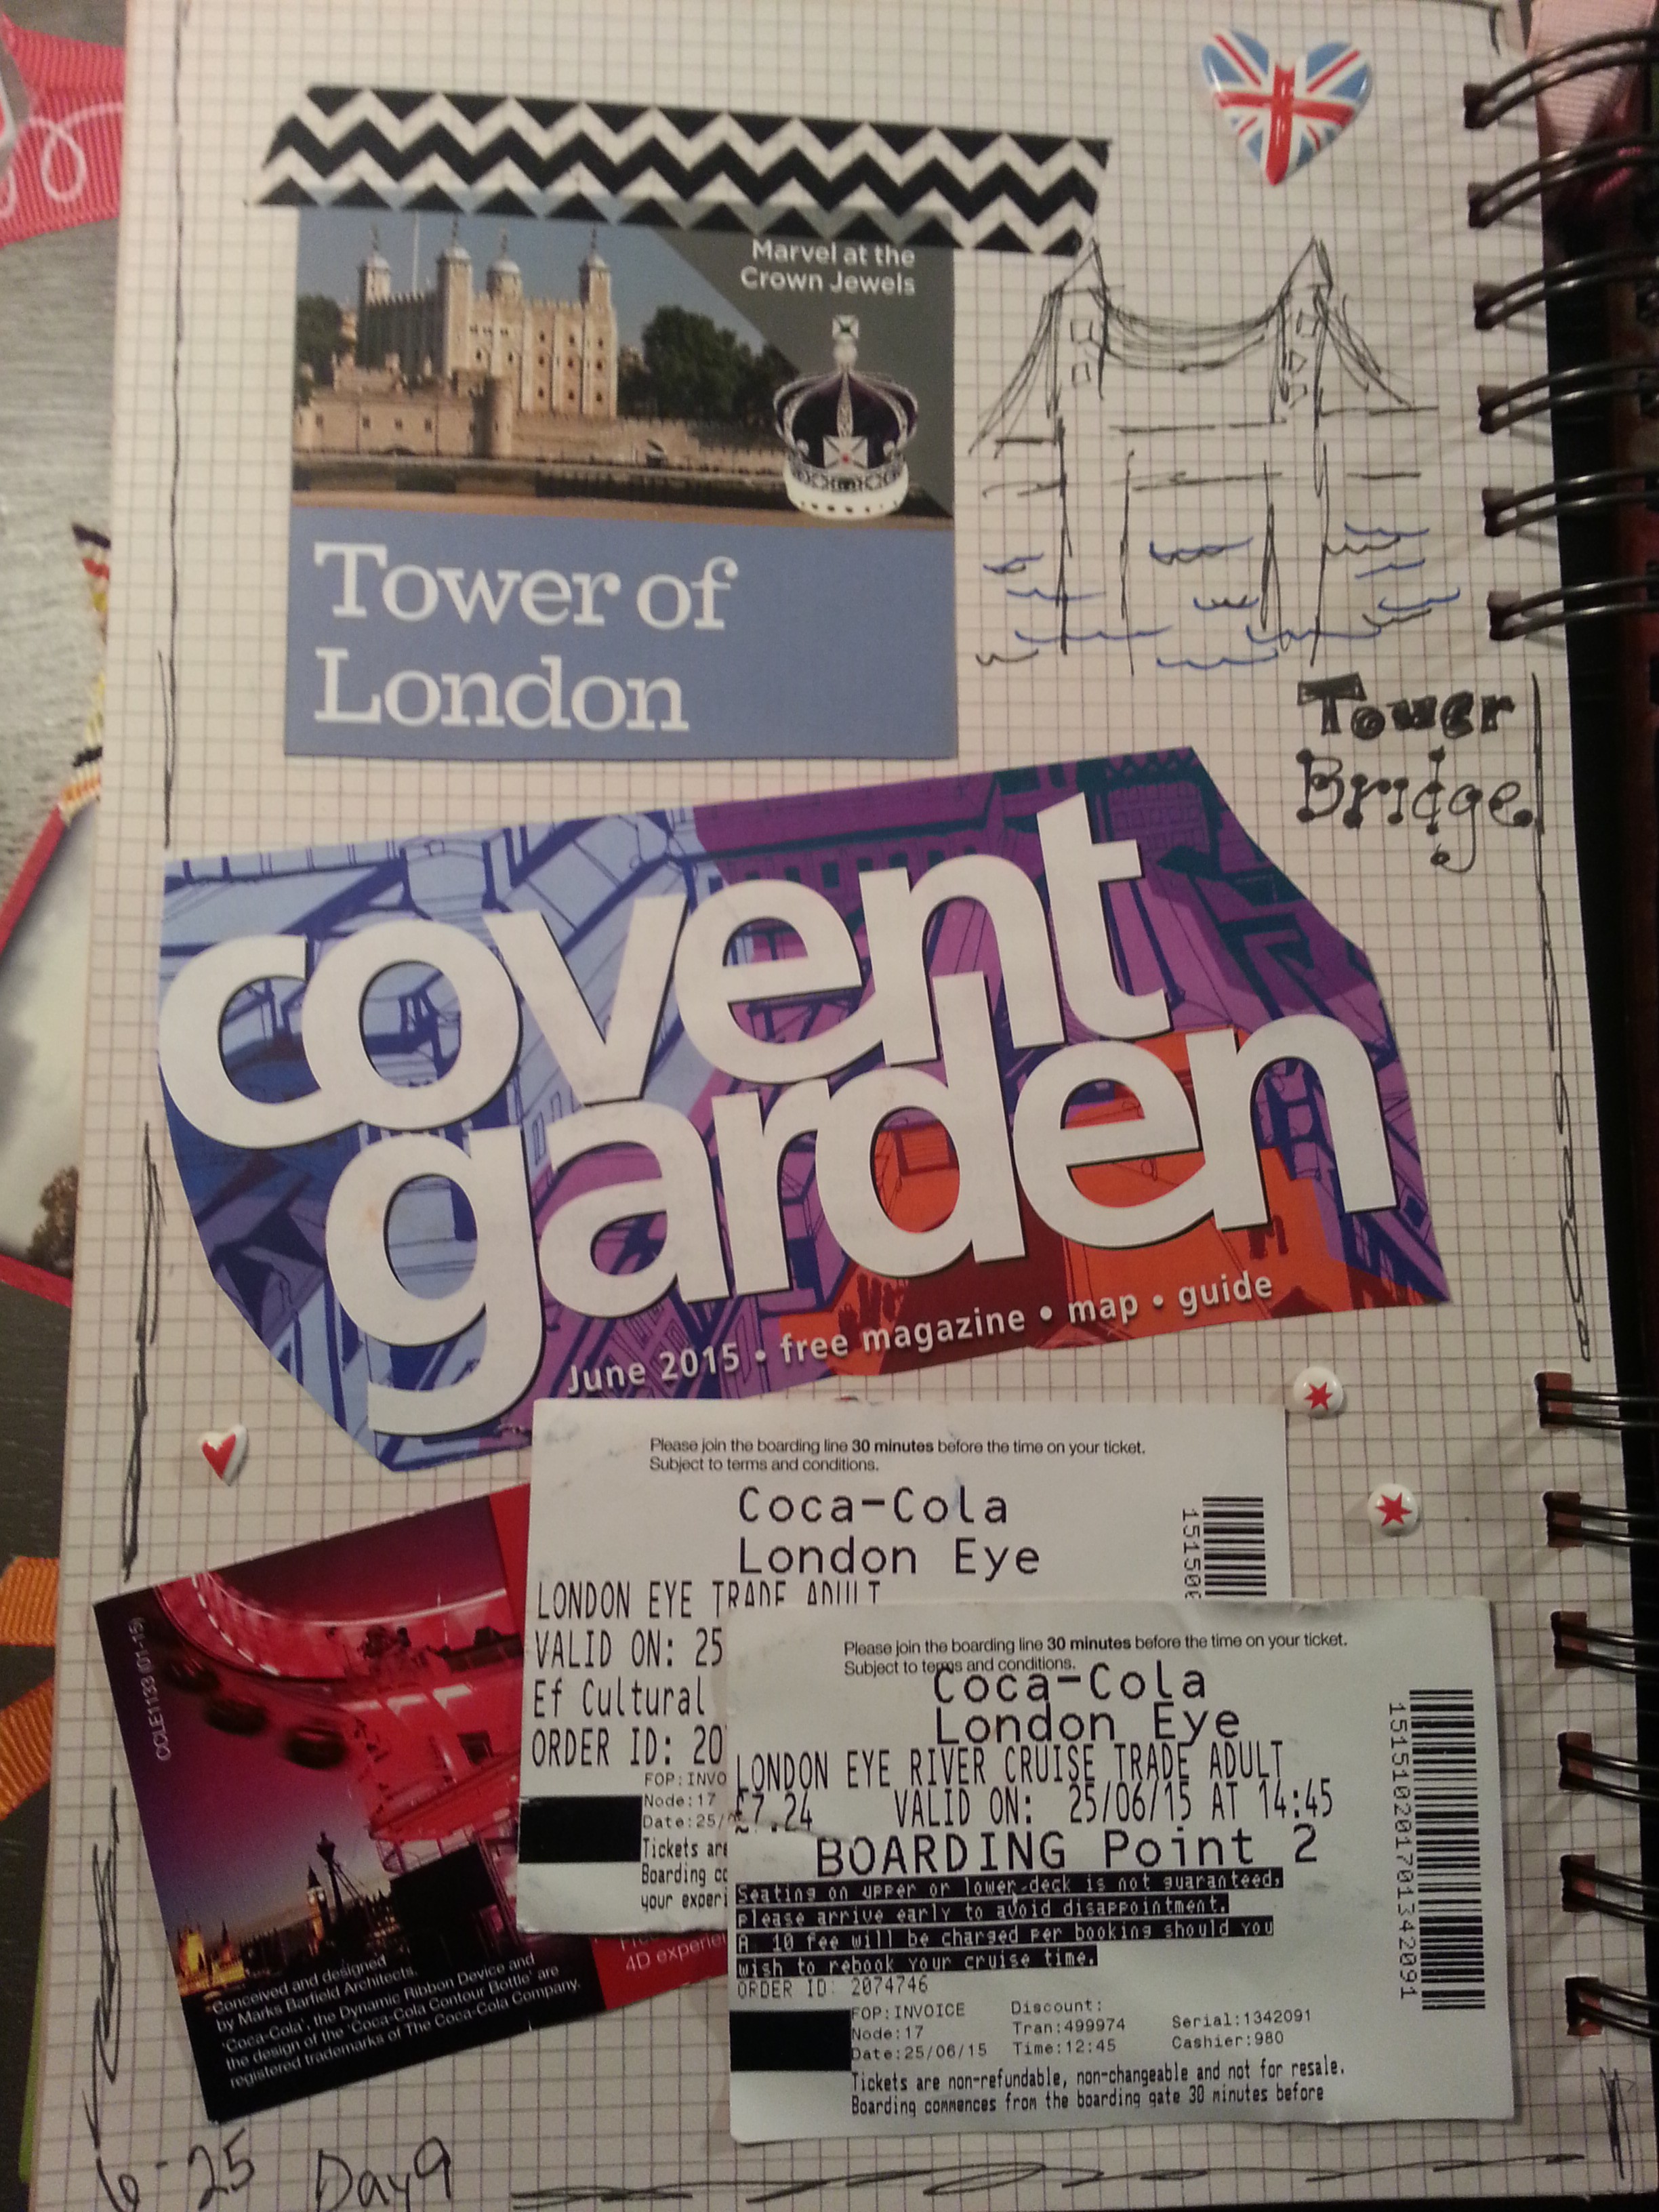 Marvel at the
Crown Jewels
Tower of
London
Tower
Bridge
covent
garden
June 2015 • free magazine • map • guide
Please join the boarding line 30 minutes before the time on your ticket.
Subject to terms and conditions.
Coca-Cola
London Eye
LONDON EYE TRADE ADULT
VALID ON: 25
Ef Cultural
ORDER ID: 20
FOP:INVO
Node:17
Date:25/
Tickets are
Boarding co
your experi
151500
CCLE1133 (01-15)
Conceived and designed
by Marks Barfield Architects.
'Coca-Cola', the Dynamic Ribbon Device and
the design of the 'Coca-Cola Contour Bottle' are
registered trademarks of The Coca-Cola Company.
4D experie
Please join the boarding line 30 minutes before the time on your ticket.
Subject to terms and conditions.
Coca-Cola
London Eye
LONDON EYE RIVER CRUISE TRADE ADULT
£7.24 VALID ON: 25/06/15 AT 14:45
BOARDING Point 2
Seating on upper or lower deck is not guaranteed,
please arrive early to avoid disappointment.
A 10 fee will be charged per booking should you
wish to rebook your cruise time.
ORDER ID: 2074746
FOP:INVOICE Discount:
Node:17 Tran:499974 Serial:1342091
Date:25/06/15 Time:12:45 Cashier:980
Tickets are non-refundable, non-changeable and not for resale.
Boarding commences from the boarding gate 30 minutes before
151510201701342091
6-25 Day 9